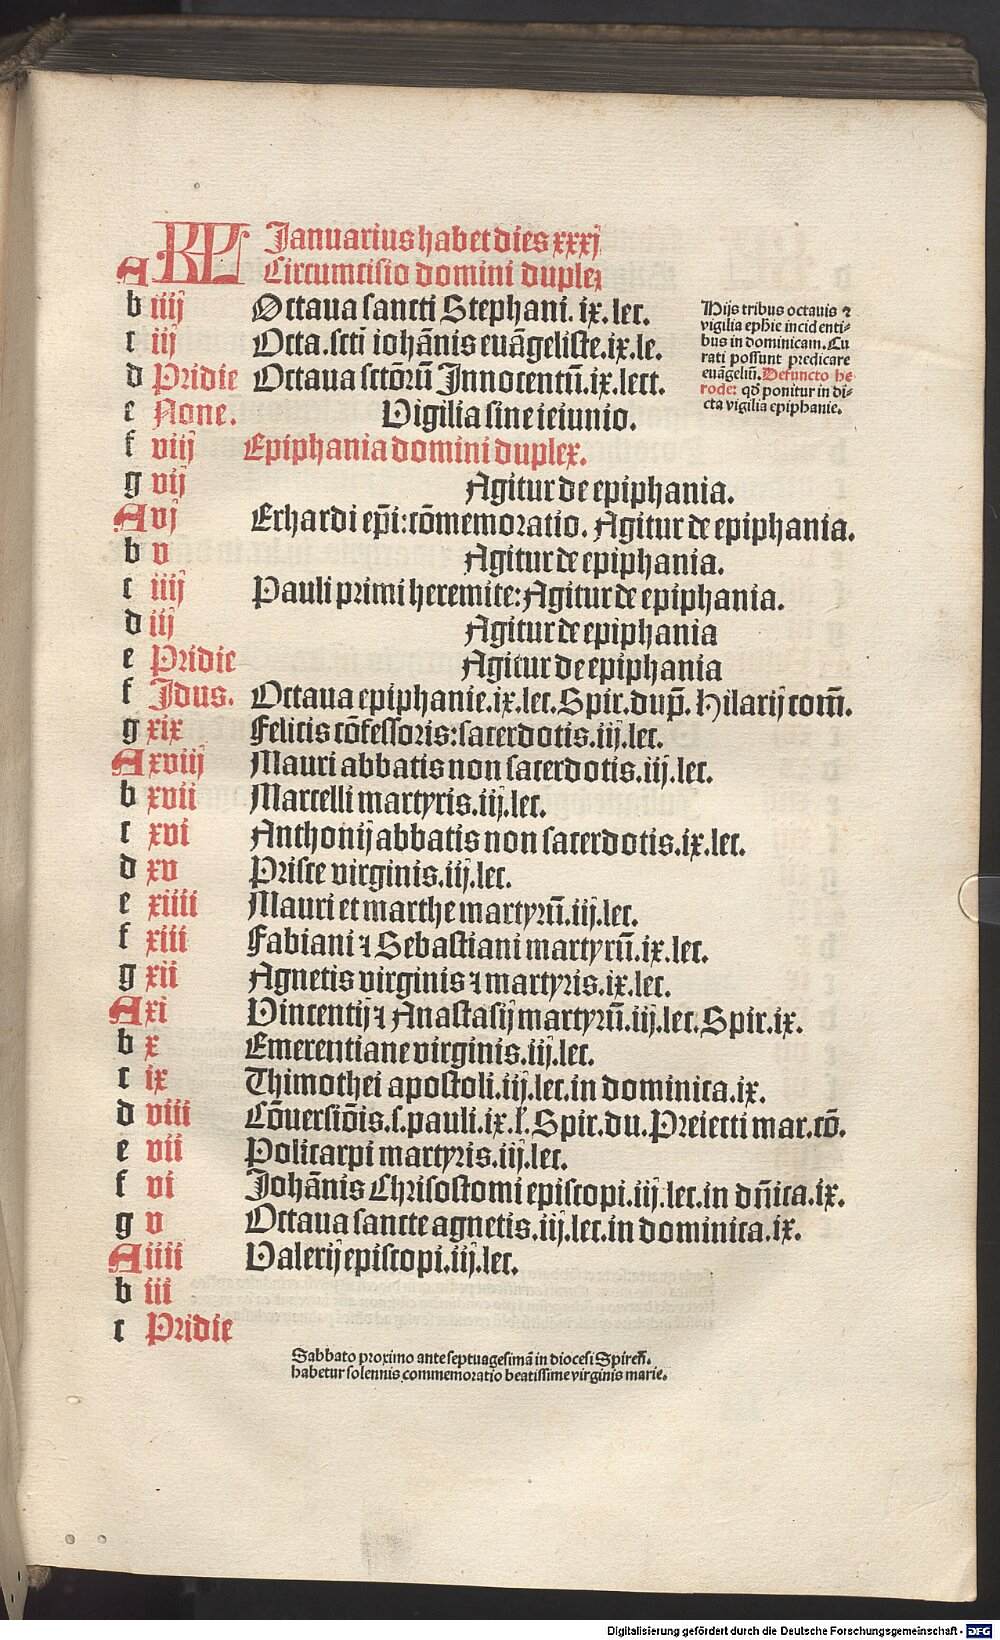 KL Januarius habet dies xxxj
A Circumcisio domini duplex
b iiij Octaua sancti Stephani. ix. lec.
c iij Octa. scti iohānis euāgeliste. ix. le.
d Pridie Octaua sctōrū Innocentū. ix. lect.
e None. Uigilia sine ieiunio.
Hijs tribus octauis ⁊
vigilia ephīe incidenti-
bus in dominicam. Cu
rati possunt predicare
euāgeliū. Defuncto he
rode: qđ ponitur in di-
cta vigilia epiphanie.
f viij Epiphania domini duplex.
g vij Agitur de epiphania.
A vj Erhardi ep̄i: cōmemoratio. Agitur de epiphania.
b v Agitur de epiphania.
c iiij Pauli primi heremite: Agitur de epiphania.
d iij Agitur de epiphania
e Pridie Agitur de epiphania
f Idus. Octaua epiphanie. ix. lec. Spir. dup̄. Hilarij com̄.
g xix Felicis cōfessoris: sacerdotis. iij. lec.
A xviij Mauri abbatis non sacerdotis. iij. lec.
b xvii Marcelli martyris. iij. lec.
c xvi Anthonij abbatis non sacerdotis. ix. lec.
d xv Prisce virginis. iij. lec.
e xiiii Mauri et marthe martyrū. iij. lec.
f xiii Fabiani ⁊ Sebastiani martyrū. ix. lec.
g xii Agnetis virginis ⁊ martyris. ix. lec.
A xi Uincentij ⁊ Anastasij martyrū. iij. lec. Spir. ix.
b x Emerentiane virginis. iij. lec.
c ix Thimothei apostoli. iij. lec. in dominica. ix.
d viii Cōuersiōis. s. pauli. ix. l. Spir. du. Preiecti mar. cō.
e vii Policarpi martyris. iij. lec.
f vi Johānis Chrisostomi episcopi. iij. lec. in dn̄ica. ix.
g v Octaua sancte agnetis. iij. lec. in dominica. ix.
A iiii Ualerij episcopi. iij. lec.
b iii
c Pridie
Sabbato proximo ante septuagesimā in diocesi Spireñ.
habetur solennis commemoratio beatissime virginis marie.
Digitalisierung gefördert durch die Deutsche Forschungsgemeinschaft - DFG